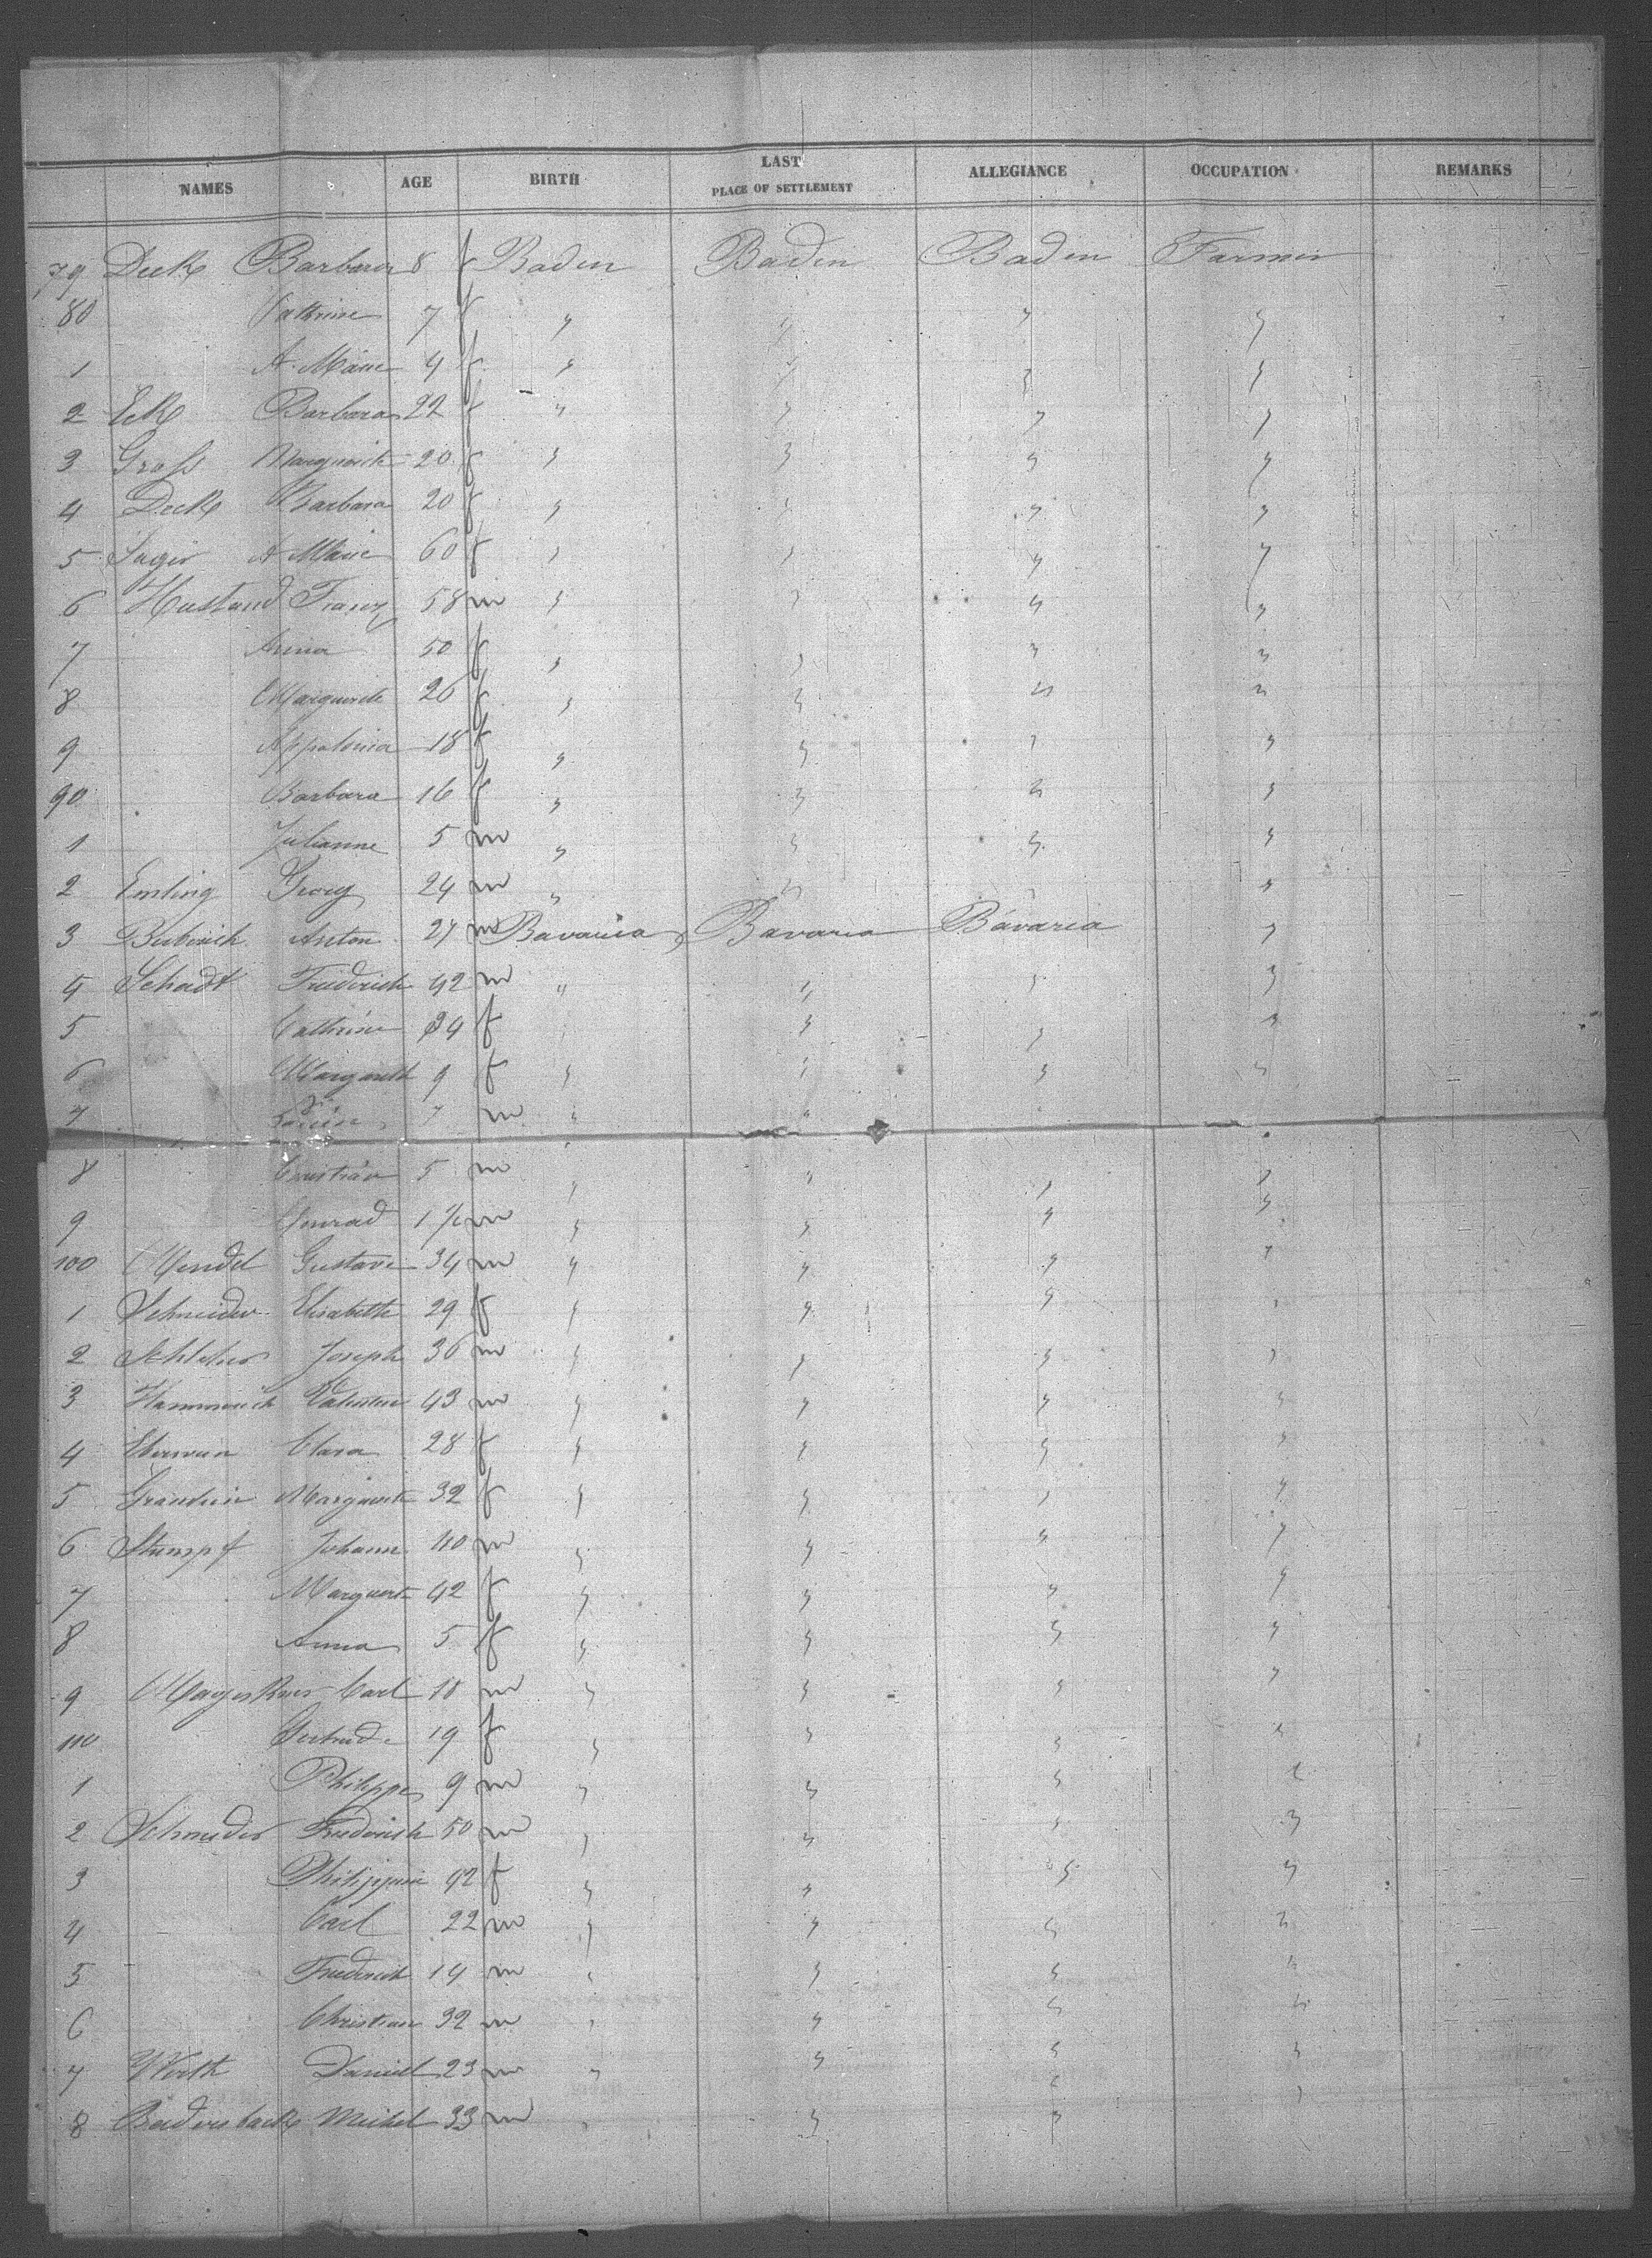 NAMES AGE BIRTH LAST PLACE OF SETTLEMENT ALLEGIANCE OCCUPATION REMARKS
79 Deck Barbara 8 f Baden Baden Baden Farmer
80 Cathrine 7 f " " " "
1 A. Marie 4 f " " " "
2 Eck Barbara 22 f " " " "
3 Grafs Marguerite 20 f " " " "
4 Deck Barbara 20 f " " " "
5 A Marie 60 f " " " "
6 Hustand Franz 58 m " " " "
7 Anna 50 f " " " "
8 Marguerite 26 f " " " "
9 Appolonia 18 f " " " "
90 Barbara 16 f " " " "
1 Julianne 5 m " " " "
2 Emling Georg 24 m " " " "
3 Anton 27 m Bavaria Bavaria Bavaria "
4 Schadt Friederich 42 m " " " "
5 Cathrine 34 f " " " "
6 Margareth 9 f " " " "
7 7 m " " " "
8 Christian 5 m " " " "
9 Conrad 1 1/2 m " " " "
100 Mendel Gustave 34 m " " " "
1 Schneider Elisabeth 29 f " " " "
2 Joseph 36 m " " " "
3 Valentin 43 m " " " "
4 Clara 28 f " " " "
5 Marguerite 32 f " " " "
6 Stumpf Johann 40 m " " " "
7 Marguerite 42 f " " " "
8 Anna 5 f " " " "
9 Carl 18 m " " " "
110 Gertrude 19 f " " " "
1 Philippe 9 m " " " "
2 Schneider Friederich 50 m " " " "
3 Philippine 42 f " " " "
4 Carl 22 m " " " "
5 Friederich 14 m " " " "
6 Christian 32 m " " " "
7 Wirth Daniel 23 m " " " "
8 Michel 33 m " " " "